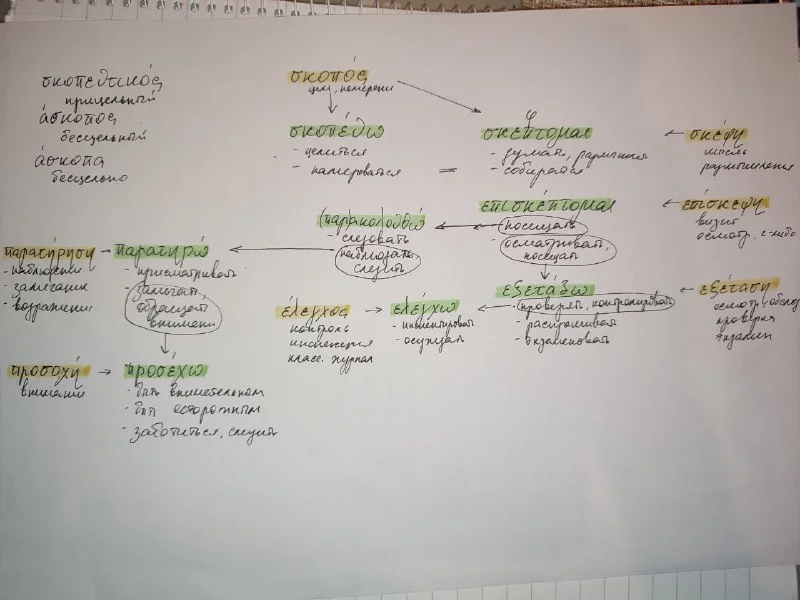 σκοπευτικός
прицельный
άσκοπος
бесцельный
άσκοπα
бесцельно
σκοπός
цель, намерени
σκοπεύω
- целиться
- намероваться
=
φ
σκέπτομαι
- думать, размышлять
- собираться
σκέψη
мысль
размышления
επισκέπτομαι
- посещать
- осматривать,
посещать
επίσκεψη
визит
осмотр
(παρακολουθώ
- следовать
- наблюдать
следить
παρατήρηση
- наблюдени
- замечание
- возражени
παρατηρώ
- присматривать
- замечать
обращать
внимани
εξετάζω
- проверять, контролировать
- распрашивать
- экзаменовать
εξέταση
осмотр, обслед
проверка
экзамен
έλεγχος
контроль
инспекция
класс. журнал
ελέγχω
- инспектировать
- осуждать
προσοχή
внимани
προσέχω
- быть внимательным
- быть осторожным
- заботиться, следить